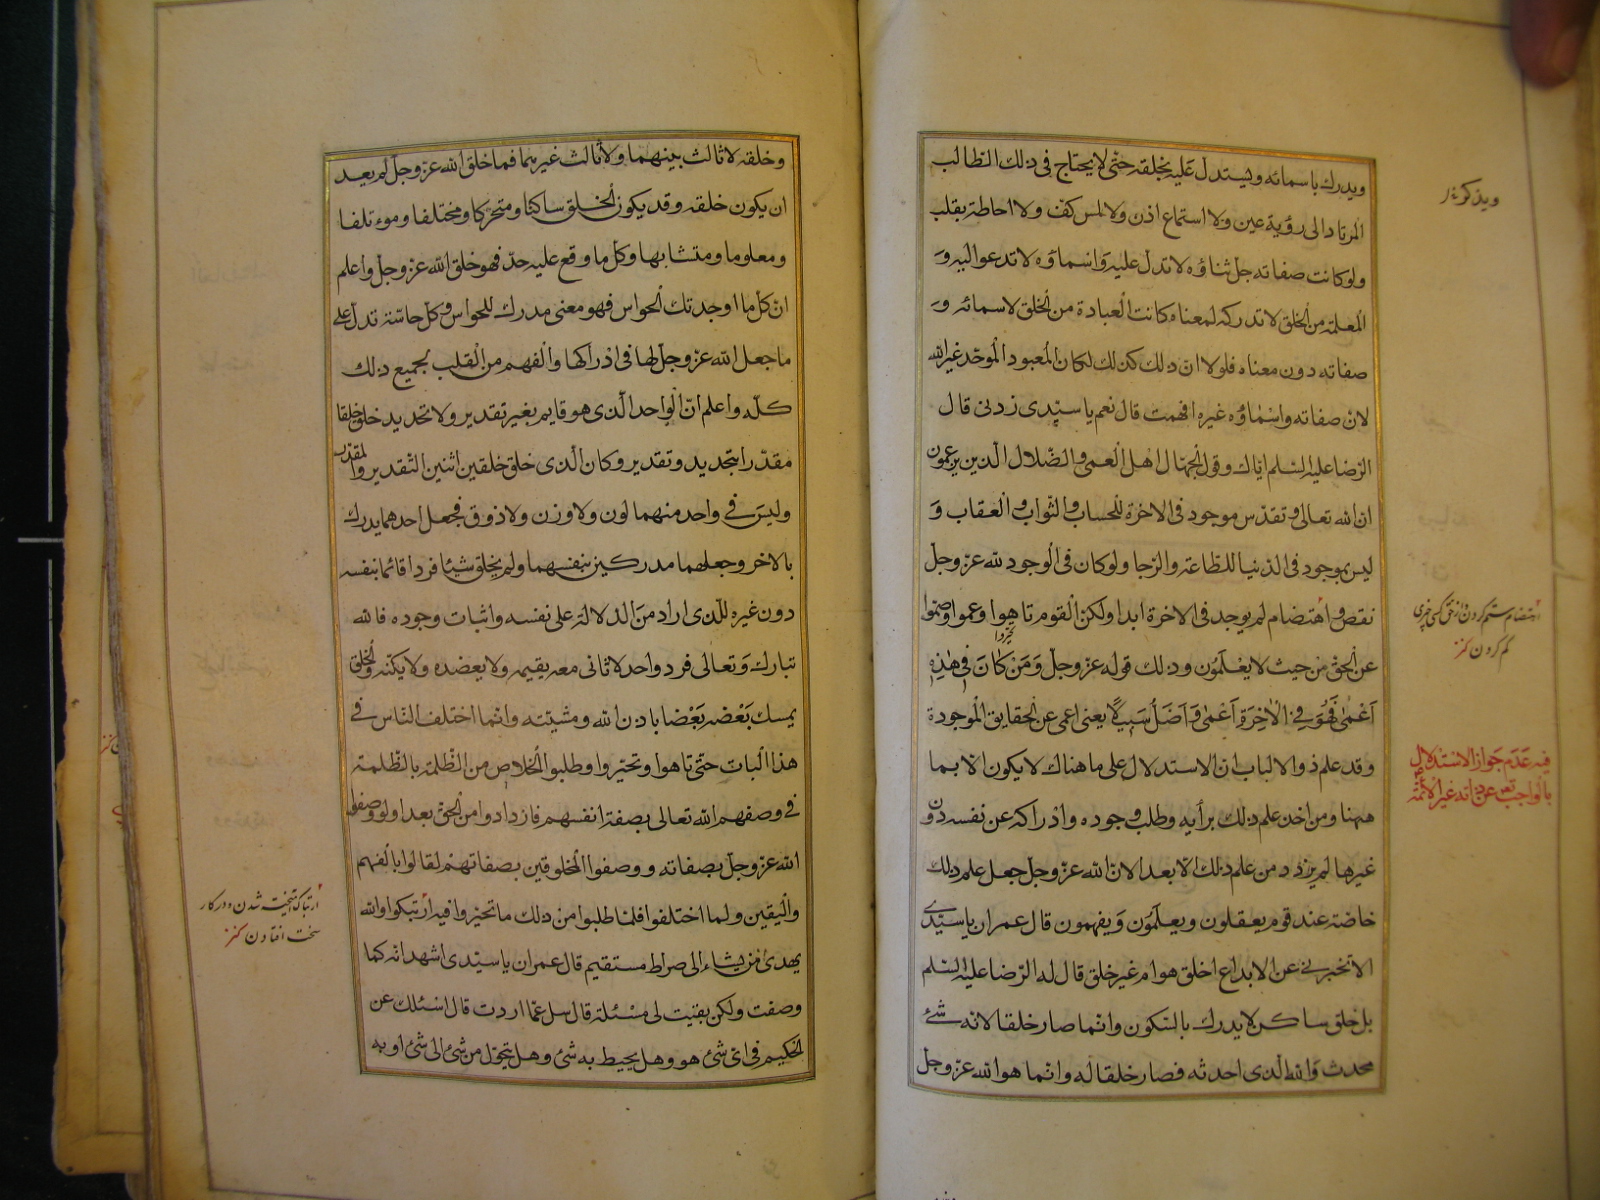 ويدرك باسمائه ويستدل عليه بخلقه حتى لا يحتاج فى ذلك الطالب
المرتاد الى رؤية عين ولا استماع اذن ولا لمس كف ولا احاطة بقلب
ولو كانت صفاته جل ثناؤه لا تدل عليه واسماؤه لا تدعو اليه و
المعلمة من الخلق لا تدركه لمعناه كانت العبادة من الخلق لاسمائه و
صفاته دون معناه فلولا ان ذلك كذلك لكان المعبود الموحد غير الله
لان صفاته واسماؤه غيره افهمت قال نعم يا سيدى زدنى قال
الرضا عليه السلم اياك وقول الجهال اهل العمى والضلال الذين يزعمون
ان الله تعالى وتقدس موجود فى الاخرة للحساب والثواب والعقاب و
ليس بموجود فى الدنيا للطاعة والرجا ولو كان فى الوجود لله عز وجل
نقص واهتضام لم يوجد فى الاخرة ابدا ولكن القوم تاهوا وعموا وصموا
عن الحق من حيث لا يعلمون وذلك قوله عز وجل وَمَن كَانَ فِى هٰذِهِ
اَعْمٰى فَهُوَ فِى الْاٰخِرَةِ اَعْمٰى وَاَضَلُّ سَبِيلًا يعنى اعمى عن الحقايق الموجودة
وقد علم ذوالالباب ان الاستدلال على ما هناك لا يكون الا بما
ههنا ومن اخذ علم ذلك برأيه وطلب وجوده وادراكه عن نفسه دون
غيرها لم يزدد من علم ذلك الا بعدا لان الله عز وجل جعل علم ذلك
خاصة عند قوم يعقلون ويعلمون ويفهمون قال عمران يا سيدى
الا تخبرنى عن الابداع اخلق هو ام غير خلق قال له الرضا عليه السلم
بل خلق ساكن لا يدرك بالسكون وانما صار خلقا لانه شئ
محدث والله الذى احدثه فصار خلقا له وانما هو الله عز وجل
ويذكر
اهتضام ستم كردن واز حق كسى چيزى
كم كردن كنز
فيه عدم جواز الاستدلال
بالواجب تع عن ذاته غير الائمة
وخلقه لا ثالث بينهما ولا ثالث غيرهما فما خلق الله عز وجل لم يعد
ان يكون خلقه وقد يكون الخلق ساكنا ومتحركا ومختلفا وموءتلفا
ومعلوما ومتشابها وكل ما وقع عليه حد فهو خلق الله عز وجل واعلم
ان كل ما اوجدتك الحواس فهو معنى مدرك للحواس وكل حاسة تدل على
ما جعل الله عز وجل لها فى ادراكها والفهم من القلب بجميع ذلك
كله واعلم ان الواحد الذى هو قايم بغير تقدير ولا تحديد خلق خلقا
مقدرا بتحديد وتقدير وكان الذى خلق خلقين اثنين التقدير والمقدر
وليس فى واحد منهما لون ولا وزن ولا ذوق فجعل احدهما يدرك
بالاخر وجعلهما مدركين بنفسهما ولم يخلق شيئا فردا قائما بنفسه
دون غيره للذى اراد من الدلالة على نفسه واثبات وجوده فالله
تبارك وتعالى فرد واحد لا ثانى معه يقيمه ولا يعضده ولا يكنه والخلق
يمسك بعضه بعضا باذن الله ومشيته وانما اختلف الناس فى
هذا الباب حتى تاهوا وتحيروا وطلبوا الخلاص من الظلمة بالظلمة
فى وصفهم الله تعالى بصفة انفسهم فازدادوا من الحق بعدا ولو وصفوا
الله عز وجل بصفاته ووصفوا المخلوقين بصفاتهم لقالوا بالفهم
واليقين ولما اختلفوا فلما طلبوا من ذلك ما تحيروا فيه ارتبكوا والله
يهدى من يشاء الى صراط مستقيم قال عمران يا سيدى اشهد انه كما
وصفت ولكن بقيت لى مسئلة قال سل عما اردت قال اسئلك عن
الحكيم فى اى شئ هو وهل يحيط به شئ وهل يتحول من شئ الى شئ او به
شدن ودر كار
سخت افتادن كنز